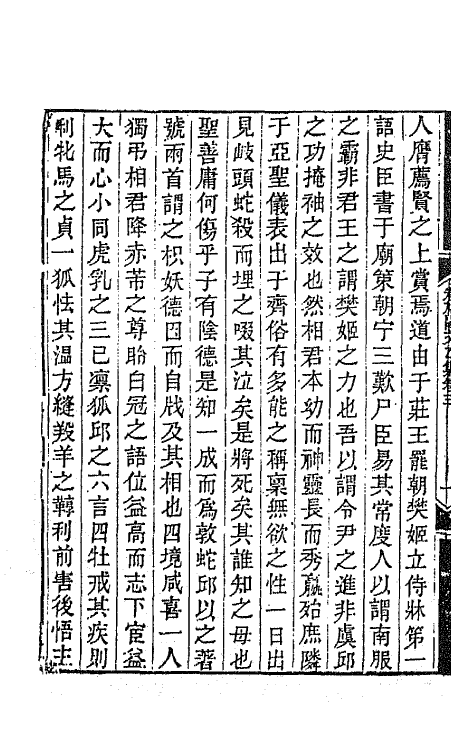 人膺薦賢之上賞焉道由于莊王罷朝樊姬立侍牀第一
語史臣書于廟策朝宁三歎尸臣易其常度人以謂南服
之霸非君王之謂樊姬之力也吾以謂令尹之進非虞邱
之功掩袖之效也然相君本幼而神靈長而秀羸殆庶隣
于亞聖儀表出于齊俗有多能之稱稟無欲之性一日出
見岐頭蛇殺而埋之啜其泣矣是將死矣其誰知之母也
聖善庸何傷乎子有陰德是知一成而爲敦蛇邱以之著
號兩首謂之枳妖德因而自戕及其相也四境咸喜一人
獨弔相君降赤芾之尊眙白冠之語位益高而志下宦益
大而心小同虎乳之三已凜狐邱之六言四牡戒其疾則
利牝馬之貞一狐怯其溫方縫羖羊之鞟利前害後悟主